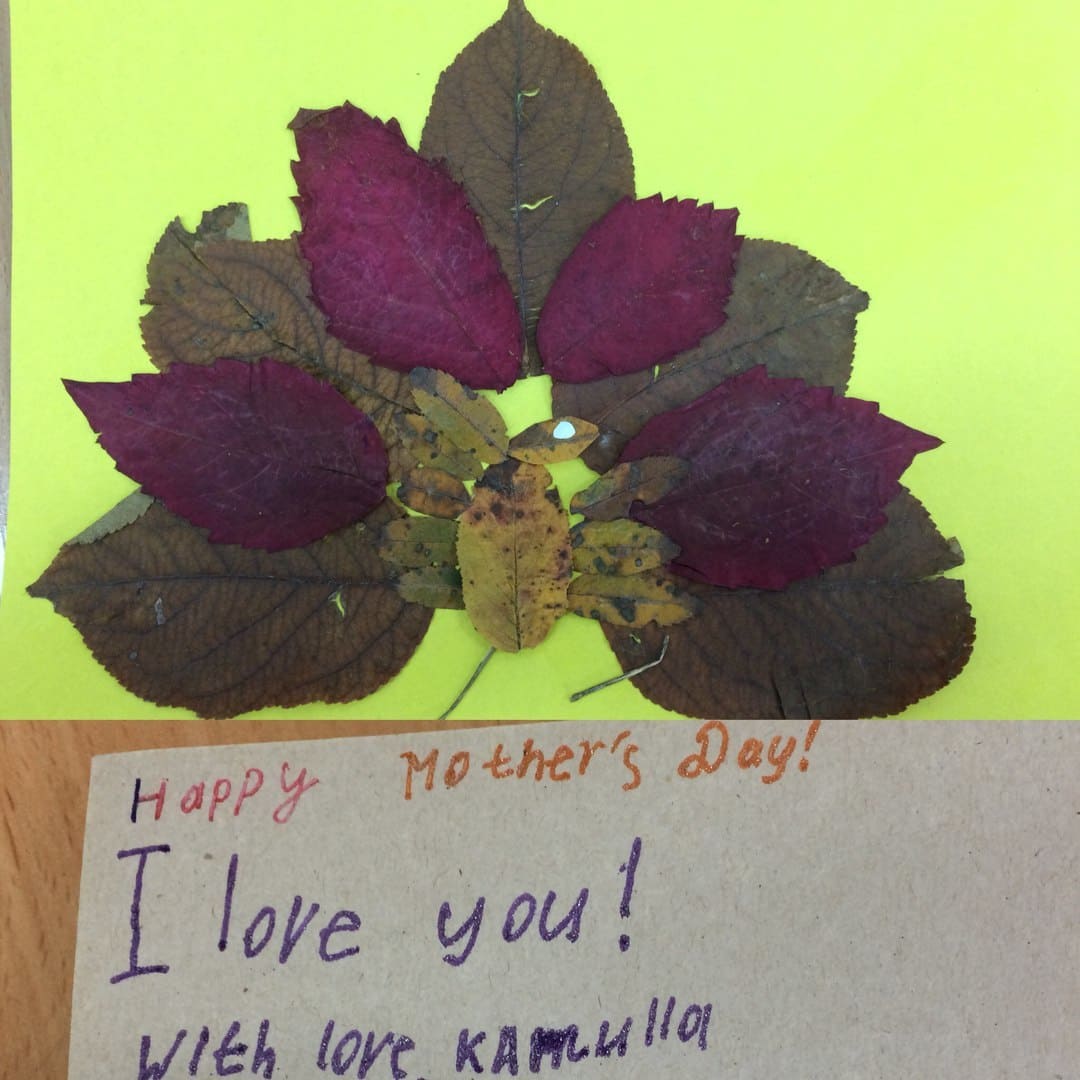 Happy Mother's Day!
I love you!
With love, KAmulla